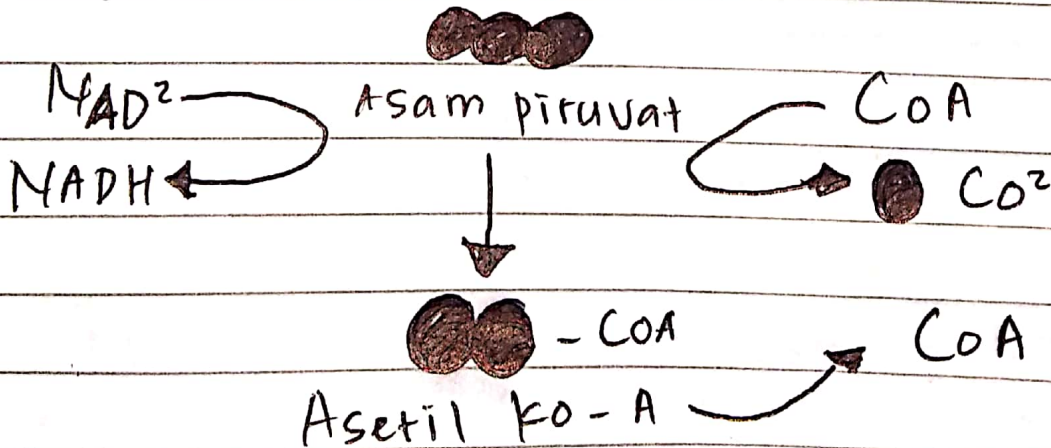 NAD² Asam piruvat CoA
NADH CO²
- COA CoA
Asetil KO-A